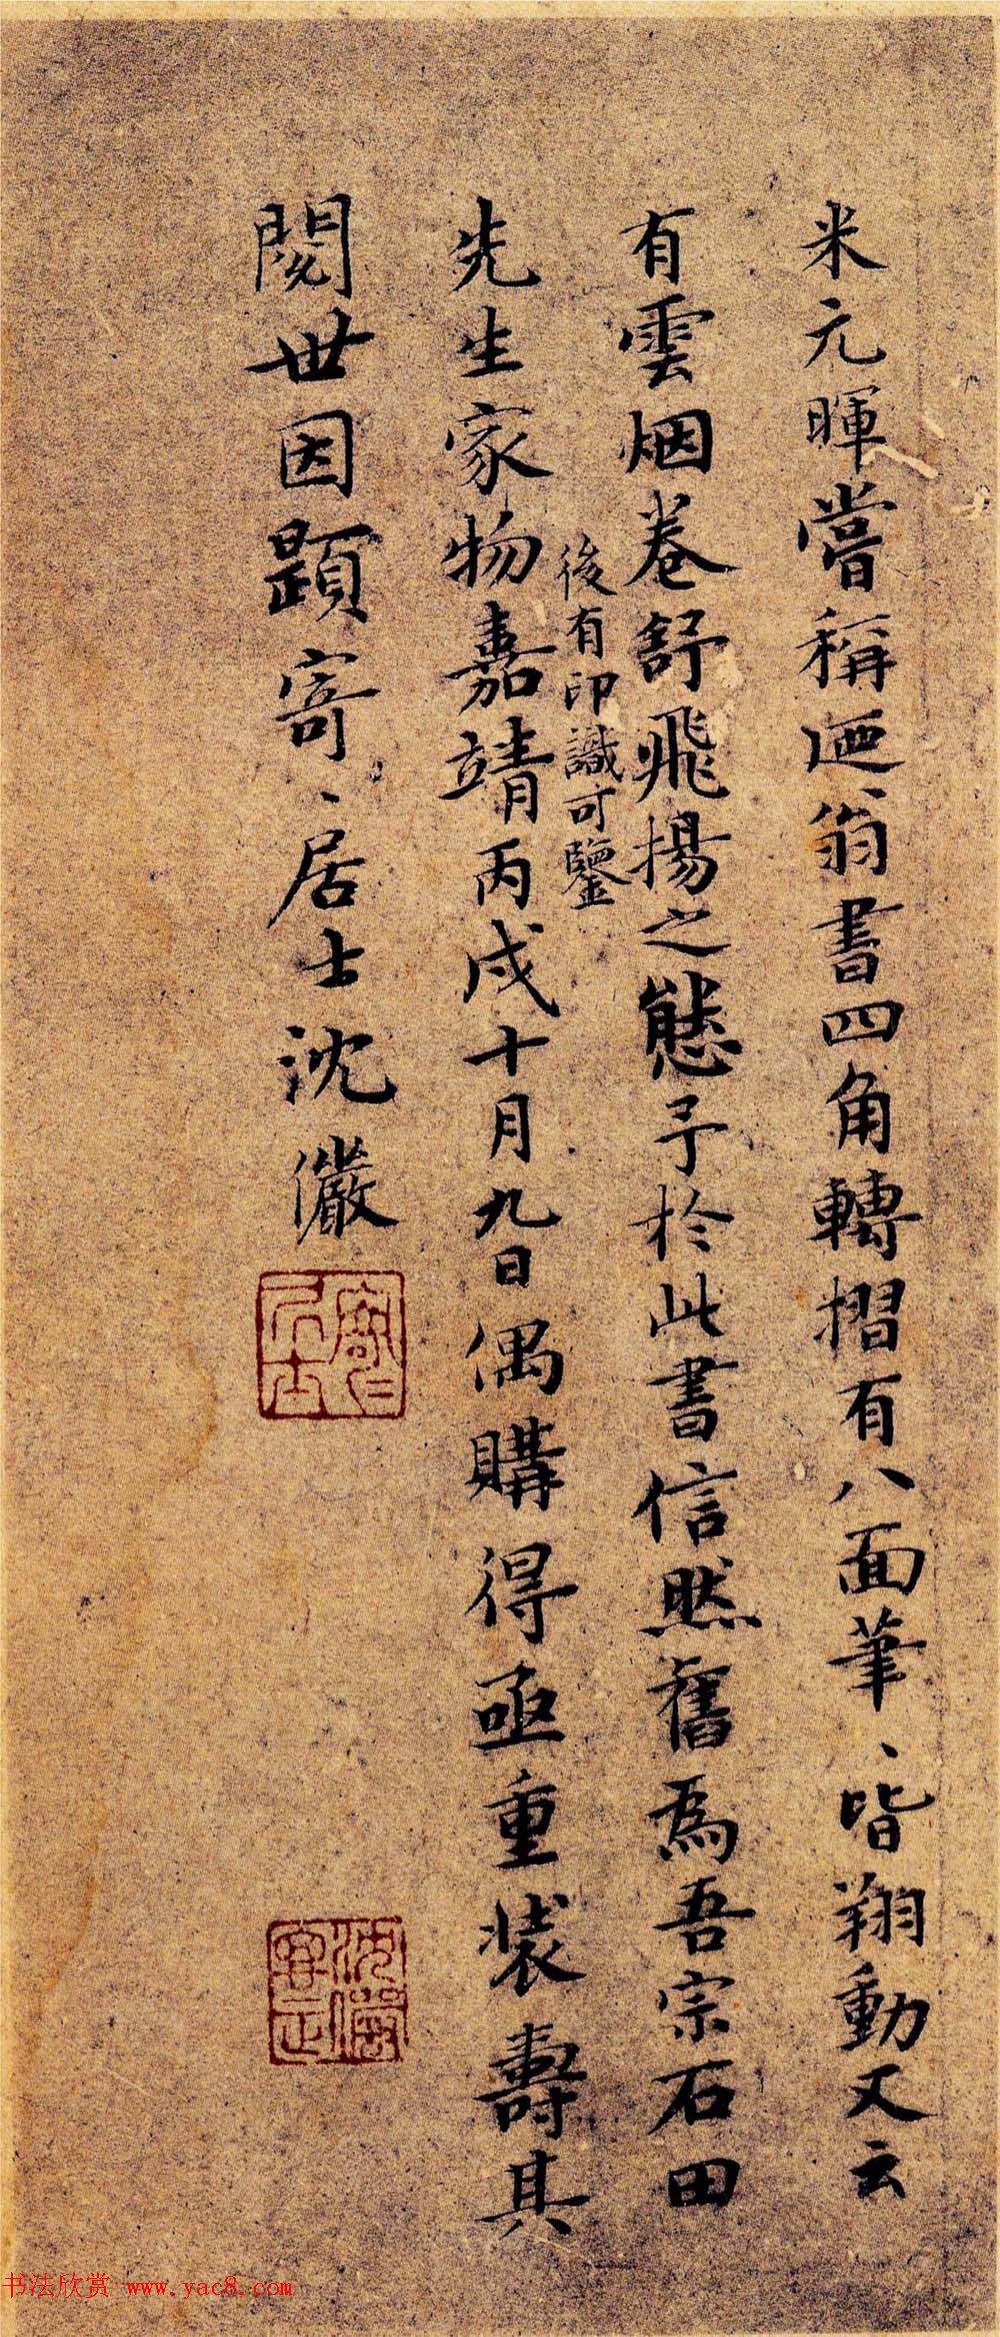 米元暉嘗稱迺翁書四角轉摺有八面筆、皆翔動又云
有雲烟卷舒飛揚之態予於此書信然舊為吾宗石田
後有印識可鑒
先生家物嘉靖丙戌十月九日偶購得亟重裝壽其
閱世因題寄、居士沈儼
书法欣赏 www.yac8.com